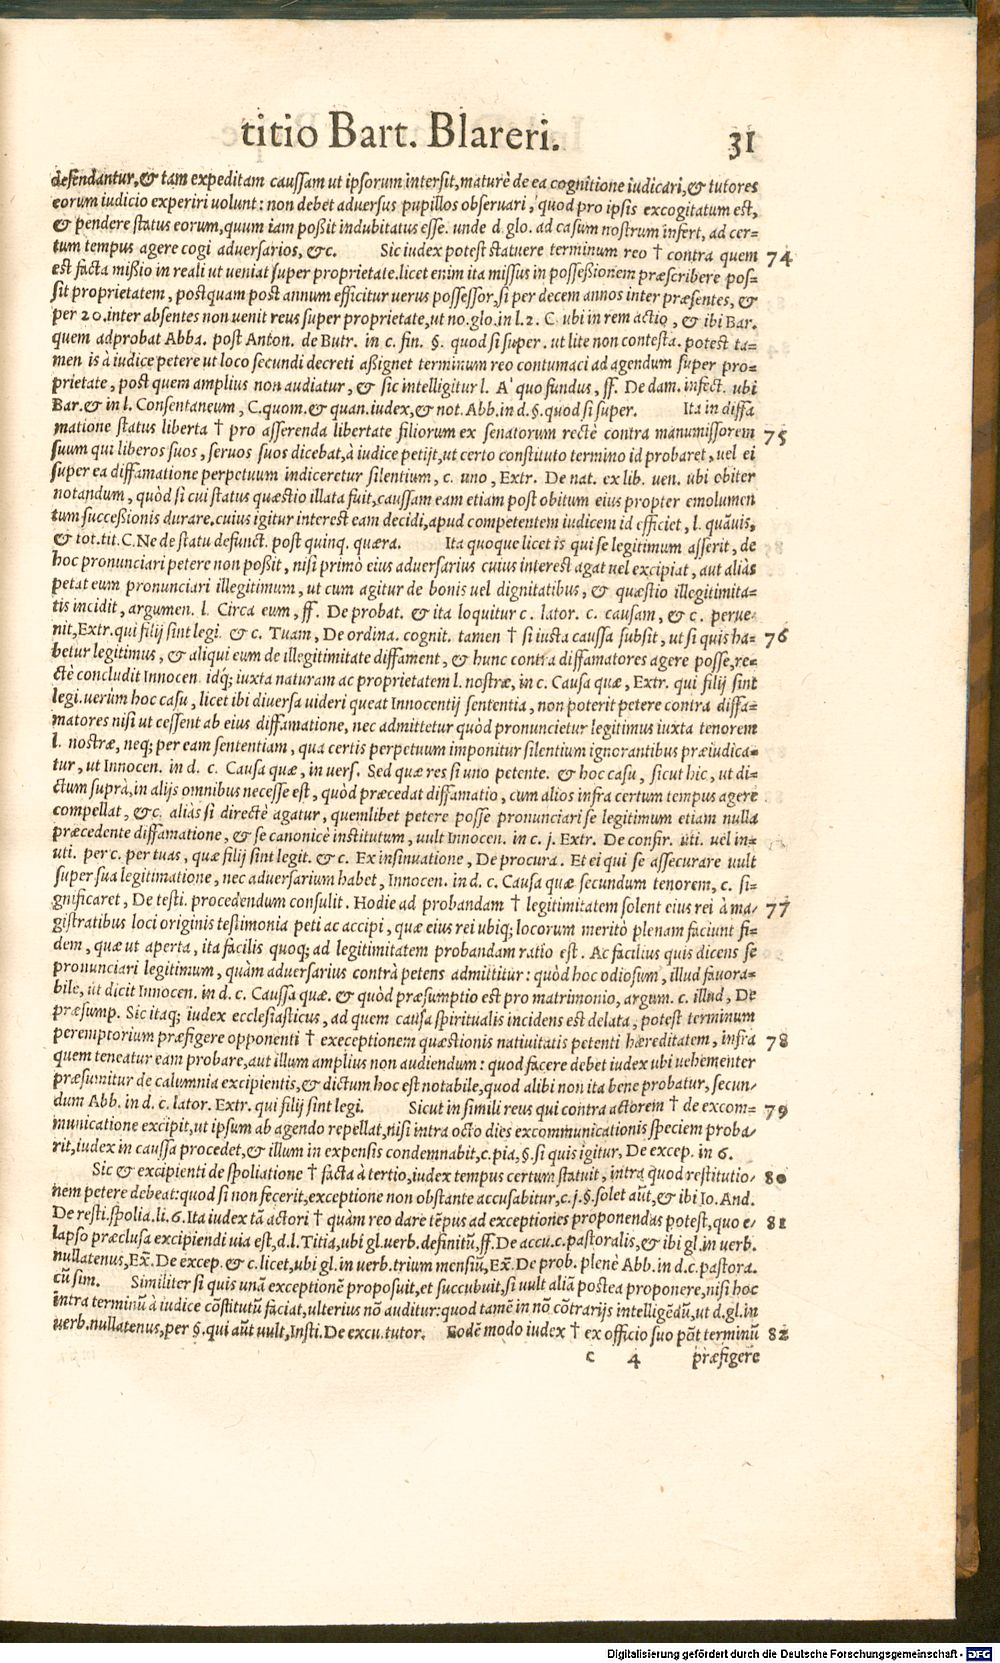 titio Bart. Blareri. 31
defendantur, & tam expeditam caussam ut ipsorum intersit, maturè de ea cognitione iudicari, & tutores
eorum iudicio experiri uolunt: non debet aduersus pupillos obseruari, quod pro ipsis excogitatum est,
& pendere status eorum, quum iam poßit indubitatus esse. unde d. glo. ad casum nostrum infert, ad cer-
tum tempus agere cogi aduersarios, &c. Sic iudex potest statuere terminum reo † contra quem 74
est facta mißio in reali ut ueniat super proprietate. licet enim ita missus in posseßionem præscribere pos-
sit proprietatem, postquam post annum efficitur uerus possessor, si per decem annos inter præsentes, &
per 20. inter absentes non uenit reus super proprietate, ut no. glo. in l. 2. C. ubi in rem actio, & ibi Bar.
quem adprobat Abba. post Anton. de Butr. in c. fin. §. quod si super. ut lite non contesta. potest ta-
men is à iudice petere ut loco secundi decreti aßignet terminum reo contumaci ad agendum super pro-
prietate, post quem amplius non audiatur, & sic intelligitur l. A' quo fundus, ff. De dam. infect. ubi
Bar. & in l. Consentaneum, C. quom. & quan. iudex, & not. Abb. in d. §. quod si super. Ita in diffa
matione status liberta † pro asserenda libertate filiorum ex senatorum rectè contra manumissorem 75
suum qui liberos suos, seruos suos dicebat, à iudice petijt, ut certo constituto termino id probaret, uel ei
super ea diffamatione perpetuum indiceretur silentium, c. uno, Extr. De nat. ex lib. uen. ubi obiter
notandum, quòd si cui status quæstio illata fuit, caussam eam etiam post obitum eius propter emolumen
tum succeßionis durare. cuius igitur interest eam decidi, apud competentem iudicem id efficiet, l. quãuis,
& tot. tit. C. Ne de statu defunct. post quinq. quæra. Ita quoque licet is qui se legitimum asserit, de
hoc pronunciari petere non poßit, nisi primò eius aduersarius cuius interest agat uel excipiat, aut aliàs
petat eum pronunciari illegitimum, ut cum agitur de bonis uel dignitatibus, & quæstio illegitimita-
tis incidit, argumen. l. Circa eum, ff. De probat. & ita loquitur c. lator. c. causam, & c. perue-
nit, Extr. qui filij sint legi. & c. Tuam, De ordina. cognit. tamen † si iusta caussa subsit, ut si quis ha- 76
betur legitimus, & aliqui eum de illegitimitate diffament, & hunc contra diffamatores agere posse, re-
ctè concludit Innocen. idq; iuxta naturam ac proprietatem l. nostræ, in c. Causa quæ, Extr. qui filij sint
legi. uerùm hoc casu, licet ibi diuersa uideri queat Innocentij sententia, non poterit petere contra diffa-
matores nisi ut cessent ab eius diffamatione, nec admittetur quòd pronuncietur legitimus iuxta tenorem
l. nostræ, neq; per eam sententiam, qua certis perpetuum imponitur silentium ignorantibus præiudica-
tur, ut Innocen. in d. c. Causa quæ, in uers. Sed quæ res si uno petente. & hoc casu, sicut hic, ut di-
ctum suprà, in alijs omnibus necesse est, quòd præcedat diffamatio, cum alios infra certum tempus agere
compellat, &c. aliàs si directè agatur, quemlibet petere posse pronunciari se legitimum etiam nulla
præcedente diffamatione, & se canonicè institutum, uult Innocen. in c. j. Extr. De confir. uti. uel in-
uti. per c. per tuas, quæ filij sint legit. & c. Ex insinuatione, De procura. Et ei qui se assecurare uult
super sua legitimatione, nec aduersarium habet, Innocen. in d. c. Causa quæ secundum tenorem, c. si-
gnificaret, De testi. procedendum consulit. Hodie ad probandam † legitimitatem solent eius rei à ma- 77
gistratibus loci originis testimonia peti ac accipi, quæ eius rei ubiq; locorum meritò plenam faciunt fi-
dem, quæ ut aperta, ita facilis quoq; ad legitimitatem probandam ratio est. Ac facilius quis dicens se
pronunciari legitimum, quàm aduersarius contrà petens admittitur: quòd hoc odiosum, illud fauora-
bile, ut dicit Innocen. in d. c. Caussa quæ. & quòd præsumptio est pro matrimonio, argum. c. illud, De
præsump. Sic itaq; iudex ecclesiasticus, ad quem causa spiritualis incidens est delata, potest terminum
peremptorium præfigere opponenti † exceptionem quæstionis natiuitatis petenti hæreditatem, infra 78
quem teneatur eam probare, aut illum amplius non audiendum: quod facere debet iudex ubi uehementer
præsumitur de calumnia excipientis, & dictum hoc est notabile, quod alibi non ita bene probatur, secun-
dum Abb. in d. c. lator. Extr. qui filij sint legi. Sicut in simili reus qui contra actorem † de excom- 79
municatione excipit, ut ipsum ab agendo repellat, nisi intra octo dies excommunicationis speciem proba-
rit, iudex in caussa procedet, & illum in expensis condemnabit, c. pia, §. si quis igitur, De excep. in 6.
Sic & excipienti de spoliatione † facta à tertio, iudex tempus certum statuit, intra quod restitutio- 80
nem petere debeat: quod si non fecerit, exceptione non obstante accusabitur, c. j. §. solet aũt, & ibi Io. And.
De resti. spolia. li. 6. Ita iudex tã actori † quàm reo dare tẽpus ad exceptiones proponendas potest, quo e- 81
lapso præclusa excipiendi uia est, d. l. Titia, ubi gl. uerb. definitũ, ff. De accu. c. pastoralis, & ibi gl. in uerb.
nullatenus, Ex̃. De excep. & c. licet, ubi gl. in uerb. trium mensiũ, Ex̃. De prob. plenè Abb. in d. c. pastora.
cũ sim. Similiter si quis unã exceptionẽ proposuit, et succubuit, si uult aliã postea proponere, nisi hoc
intra terminũ à iudice cõstitutũ faciat, ulterius nõ auditur: quod tamẽ in nõ cõtrarijs intelligẽdũ, ut d. gl. in
uerb. nullatenus, per §. qui aũt uult, Insti. De excu. tutor. Eodẽ modo iudex † ex officio suo põt terminũ 82
c 4 præfigere
Digitalisierung gefördert durch die Deutsche Forschungsgemeinschaft - DFG